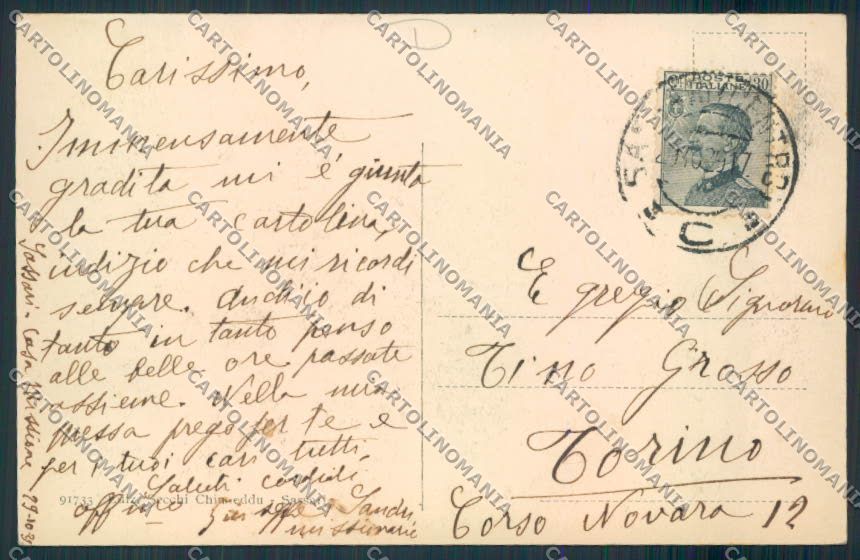 Carissimo,
Immensamente
gradita mi è giunta
la tua cartolina,
indizio che mi ricordi
sempre. Anch'io di
tanto in tanto penso
alle belle ore passate
assieme. Nella mia
messa prego per te e
per i tuoi cari tutti.
Saluti cordiali
aff.mo Giuseppe
missionario
Sassari - Casa Missione 29-10-
91733 Luigi Secchi Chiareddu - Sassari
POSTE
ITALIANE
30
Egregio Signorino
Tino Grosso
Torino
Corso Novara 12
CARTOLINOMANIA